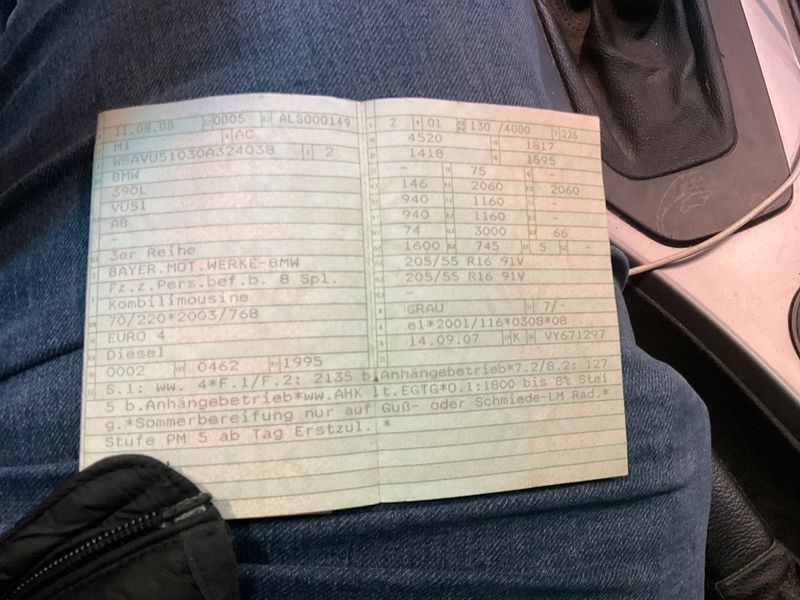 11.08.08 0005 ALS000149
M1 AC
WBAVU51030A324038 2
BMW
390L
VU51
AB
-
3er Reihe
BAYER.MOT.WERKE-BMW
Fz.z.Pers.bef.b. 8 Spl.
Kombilimousine
70/220*2003/76B
EURO 4
Diesel
0002 0462 1995
2 01 130 /4000 226
4520 1817
1418 1595
- 75 -
146 2060 2060
940 1160 -
940 1160 -
74 3000 66
1600 745 5 -
205/55 R16 91V
205/55 R16 91V
-
GRAU 7/-
e1*2001/116*0308*08
14.09.07 K VY671297
S.1: ww. 4*F.1/F.2: 2135 b.Anhängebetrieb*7.2/8.2: 127
5 b.Anhängebetrieb*ww.AHK lt.EGTG*O.1:1800 bis 8% Stei
g.*Sommerbereifung nur auf Guß- oder Schmiede-LM Rad.*
Stufe PM 5 ab Tag Erstzul. *